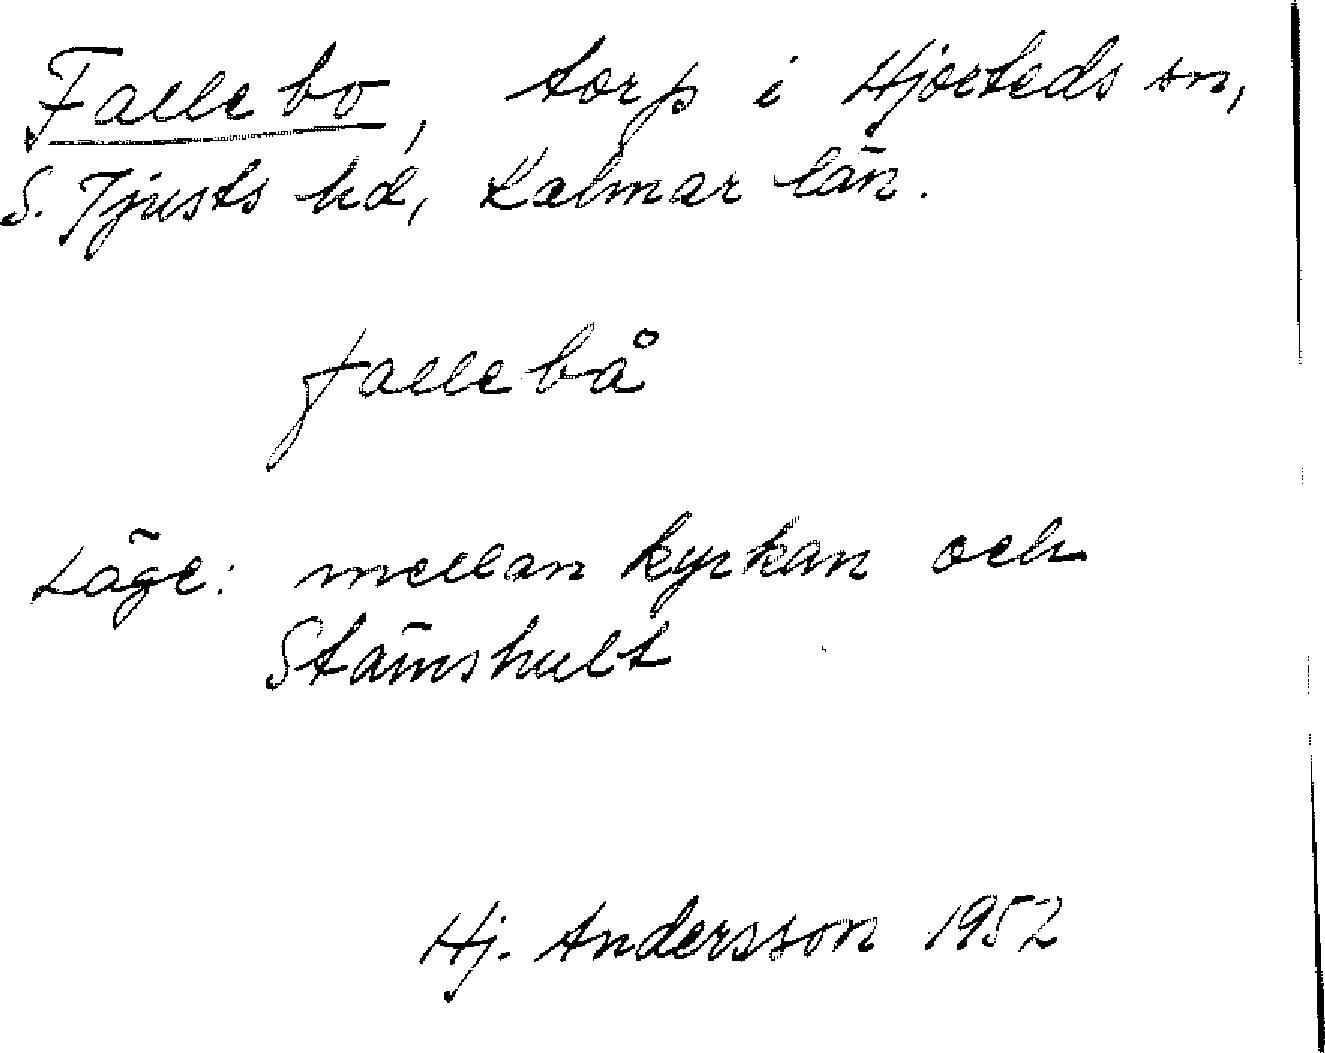 Fallebo, torp i Hjorteds sn,
S. Tjusts hd, Kalmar län.
fallebå
Läge: mellan kyrkan och
Stämshult
Hj. Andersson 1952